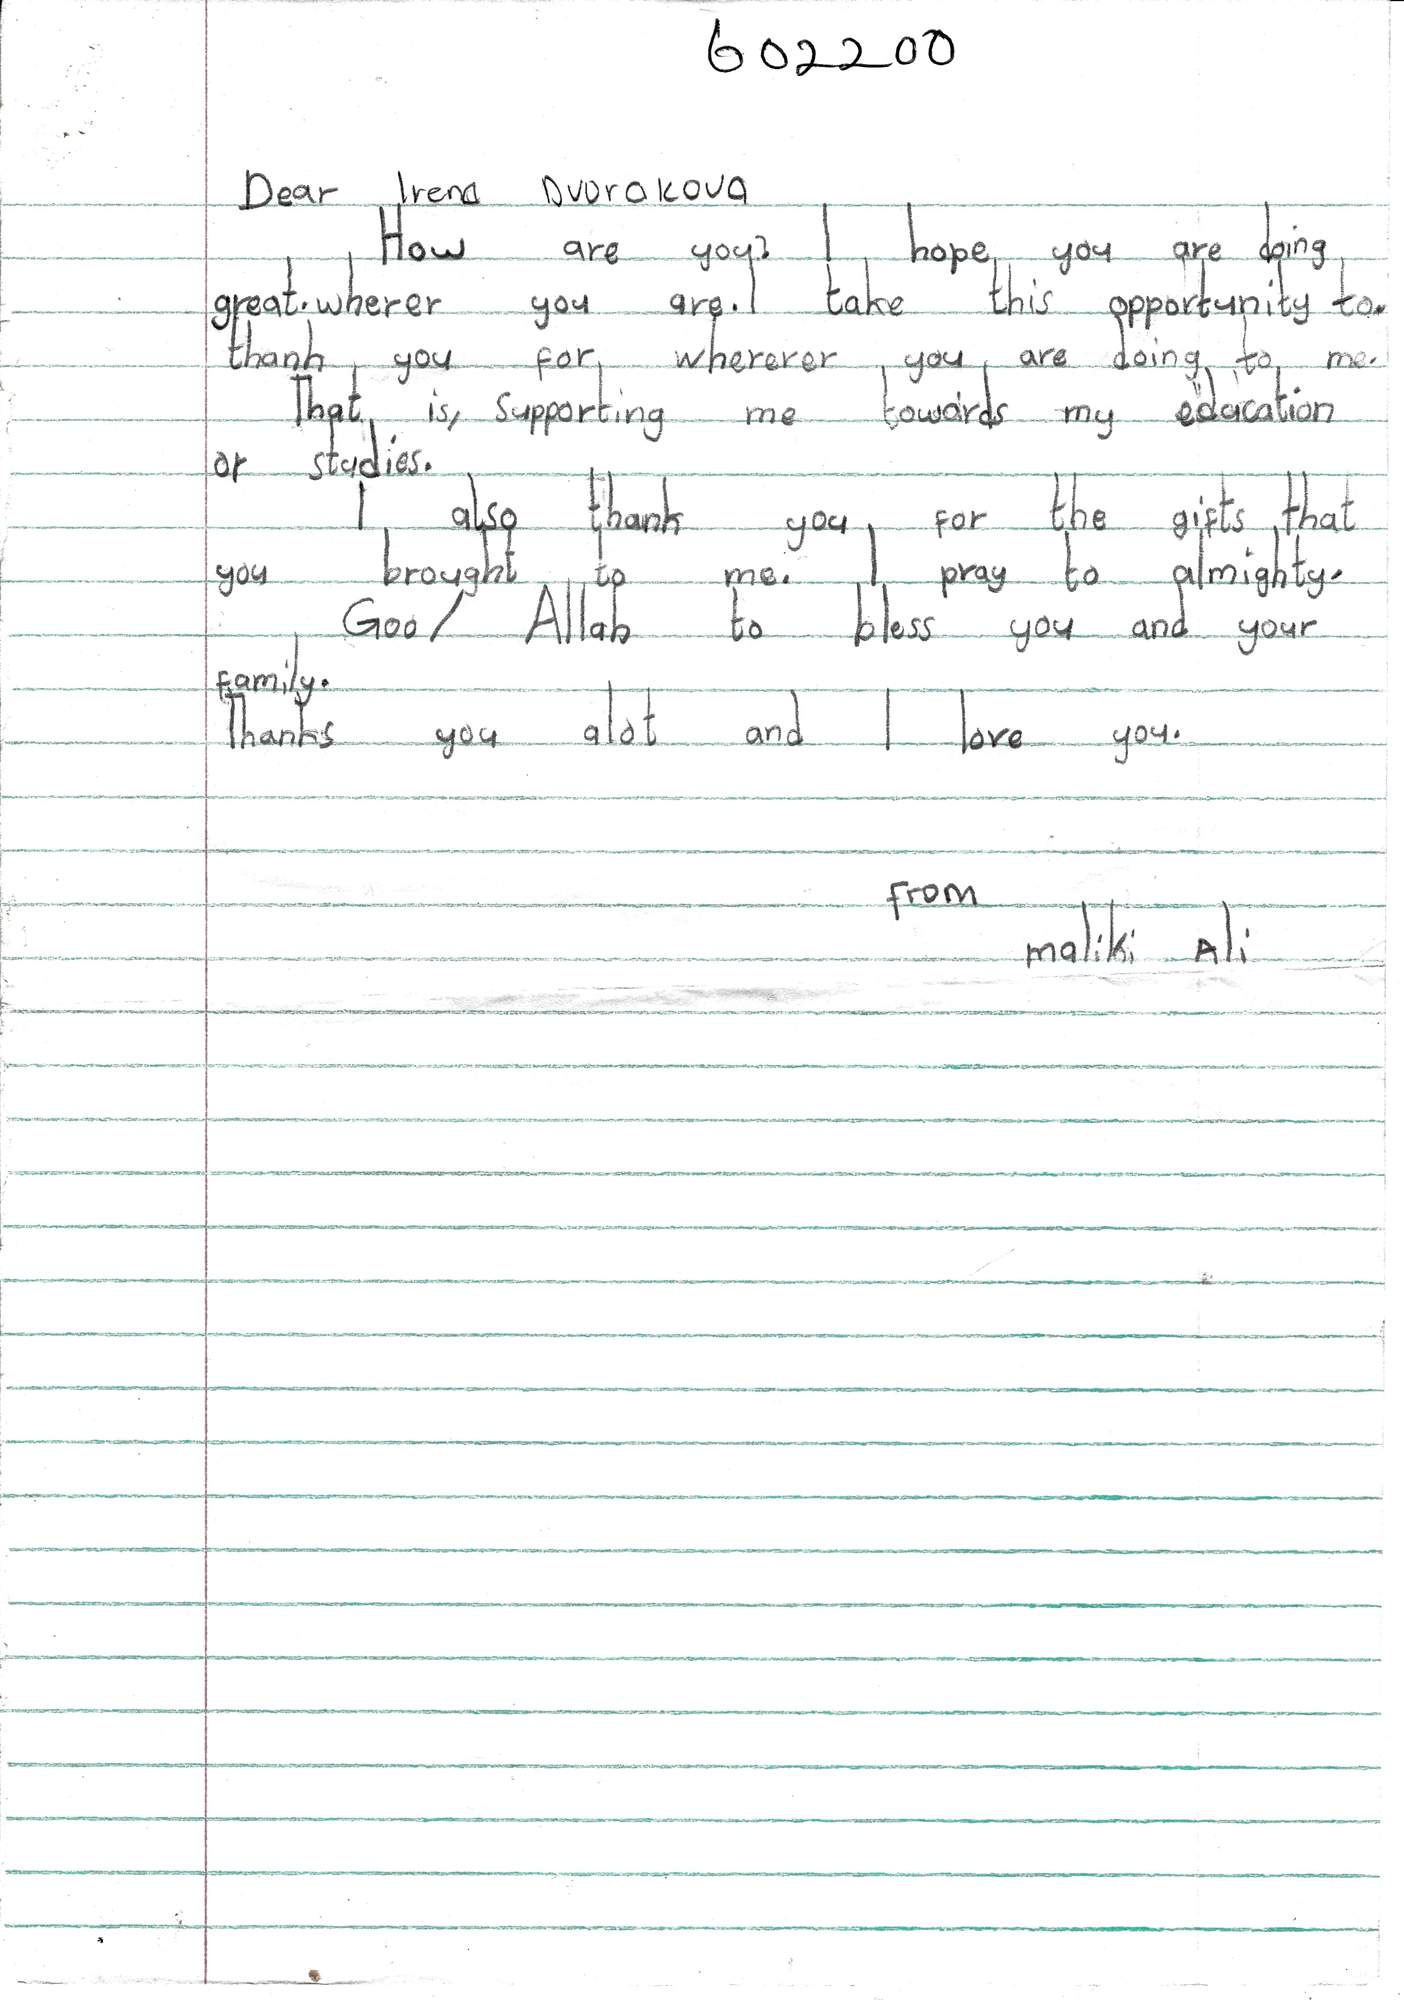 602200
Dear Irena Dvorakova
How are you? I hope you are doing
great. wherer you are. I take this opportunity to.
thank you for whererer you are doing to me.
That is, supporting me towards my education
or studies.
I also thank you for the gifts that
you brought to me. I pray to almighty.
Goo/ Allah to bless you and your
family.
Thanks you alot and I love you.
from
maliki Ali